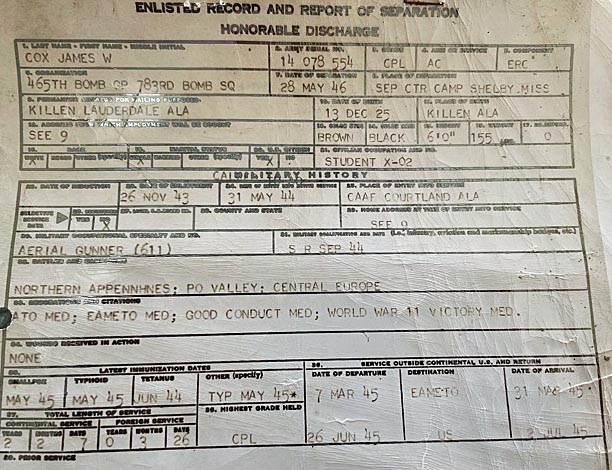 ENLISTED RECORD AND REPORT OF SEPARATION
HONORABLE DISCHARGE
1. LAST NAME - FIRST NAME - MIDDLE INITIAL 2. ARMY SERIAL NO. 3. GRADE 4. ARM OR SERVICE 5. COMPONENT
COX JAMES W 14 078 554 CPL AC ERC
6. ORGANIZATION 7. DATE OF SEPARATION 8. PLACE OF SEPARATION
465TH BOMB GP 783RD BOMB SQ 28 MAY 46 SEP CTR CAMP SHELBY MISS
9. PERMANENT ADDRESS FOR MAILING PURPOSES 10. DATE OF BIRTH 11. PLACE OF BIRTH
KILLEN LAUDERDALE ALA 13 DEC 25 KILLEN ALA
12. ADDRESS FROM WHICH EMPLOYMENT WILL BE SOUGHT 13. COLOR EYES 14. COLOR HAIR 15. HEIGHT 16. WEIGHT
SEE 9 BROWN BLACK 6'0" 155 0
18. RACE 19. MARITAL STATUS 20. U.S. CITIZEN 21. CIVILIAN OCCUPATION AND NO.
X X X STUDENT X-02
MILITARY HISTORY
22. DATE OF INDUCTION 23. DATE OF ENLISTMENT 24. DATE OF ENTRY INTO ACTIVE SERVICE 25. PLACE OF ENTRY INTO SERVICE
26 NOV 43 31 MAY 44 CAAF COURTLAND ALA
SELECTIVE SERVICE DATA YES NO 28. COUNTY AND STATE 29. HOME ADDRESS AT TIME OF ENTRY INTO SERVICE
X SEE 9
30. MILITARY OCCUPATIONAL SPECIALTY AND NO. 31. MILITARY QUALIFICATION AND DATE (i.e., infantry, aviation and marksmanship badges, etc.)
AERIAL GUNNER (611) S R SEP 44
32. BATTLES AND CAMPAIGNS
NORTHERN APPENNHNES; PO VALLEY; CENTRAL EUROPE
33. DECORATIONS AND CITATIONS
ATO MED; EAMETO MED; GOOD CONDUCT MED; WORLD WAR 11 VICTORY MED.
34. WOUNDS RECEIVED IN ACTION
NONE
35. LATEST IMMUNIZATION DATES 36. SERVICE OUTSIDE CONTINENTAL U.S. AND RETURN
SMALLPOX TYPHOID TETANUS OTHER (specify) DATE OF DEPARTURE DESTINATION DATE OF ARRIVAL
MAY 45 MAY 45 JUN 44 TYP MAY 45* 7 MAR 45 EAMETO 31 MAR 45
37. TOTAL LENGTH OF SERVICE 38. HIGHEST GRADE HELD
CONTINENTAL SERVICE FOREIGN SERVICE
YEARS MONTHS DAYS YEARS MONTHS DAYS
2 2 7 0 3 26 CPL 26 JUN 45 US 3 JUL 45
39. PRIOR SERVICE